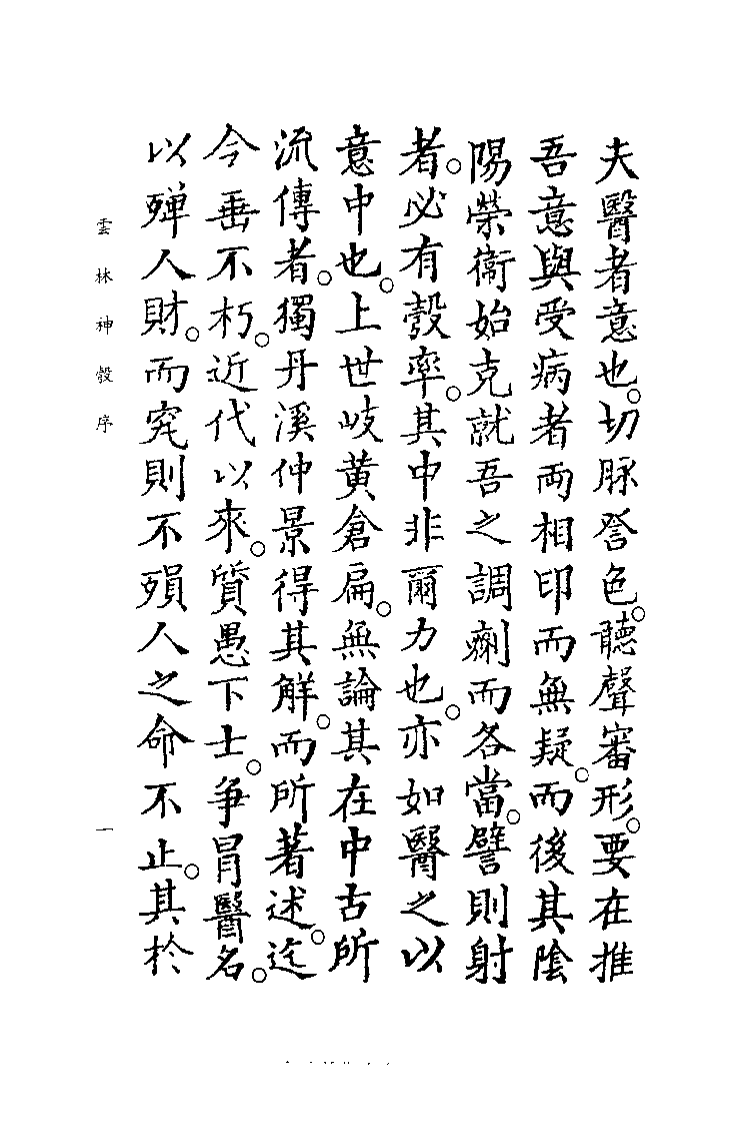 夫醫者意也。切脉詧色。聽聲審形。要在推
吾意與受病者両相印而無疑。而後其陰
陽榮衞始克就吾之調劑而各當。譬則射
者。必有彀率。其中非爾力也。亦如醫之以
意中也。上世岐黄倉扁。無論其在中古所
流傳者。獨丹溪仲景得其解。而所著述。迄
今垂不朽。近代以來。質愚下士。争冐醫名。
以殫人財。而究則不殞人之命不止。其扵
雲林神彀序
一